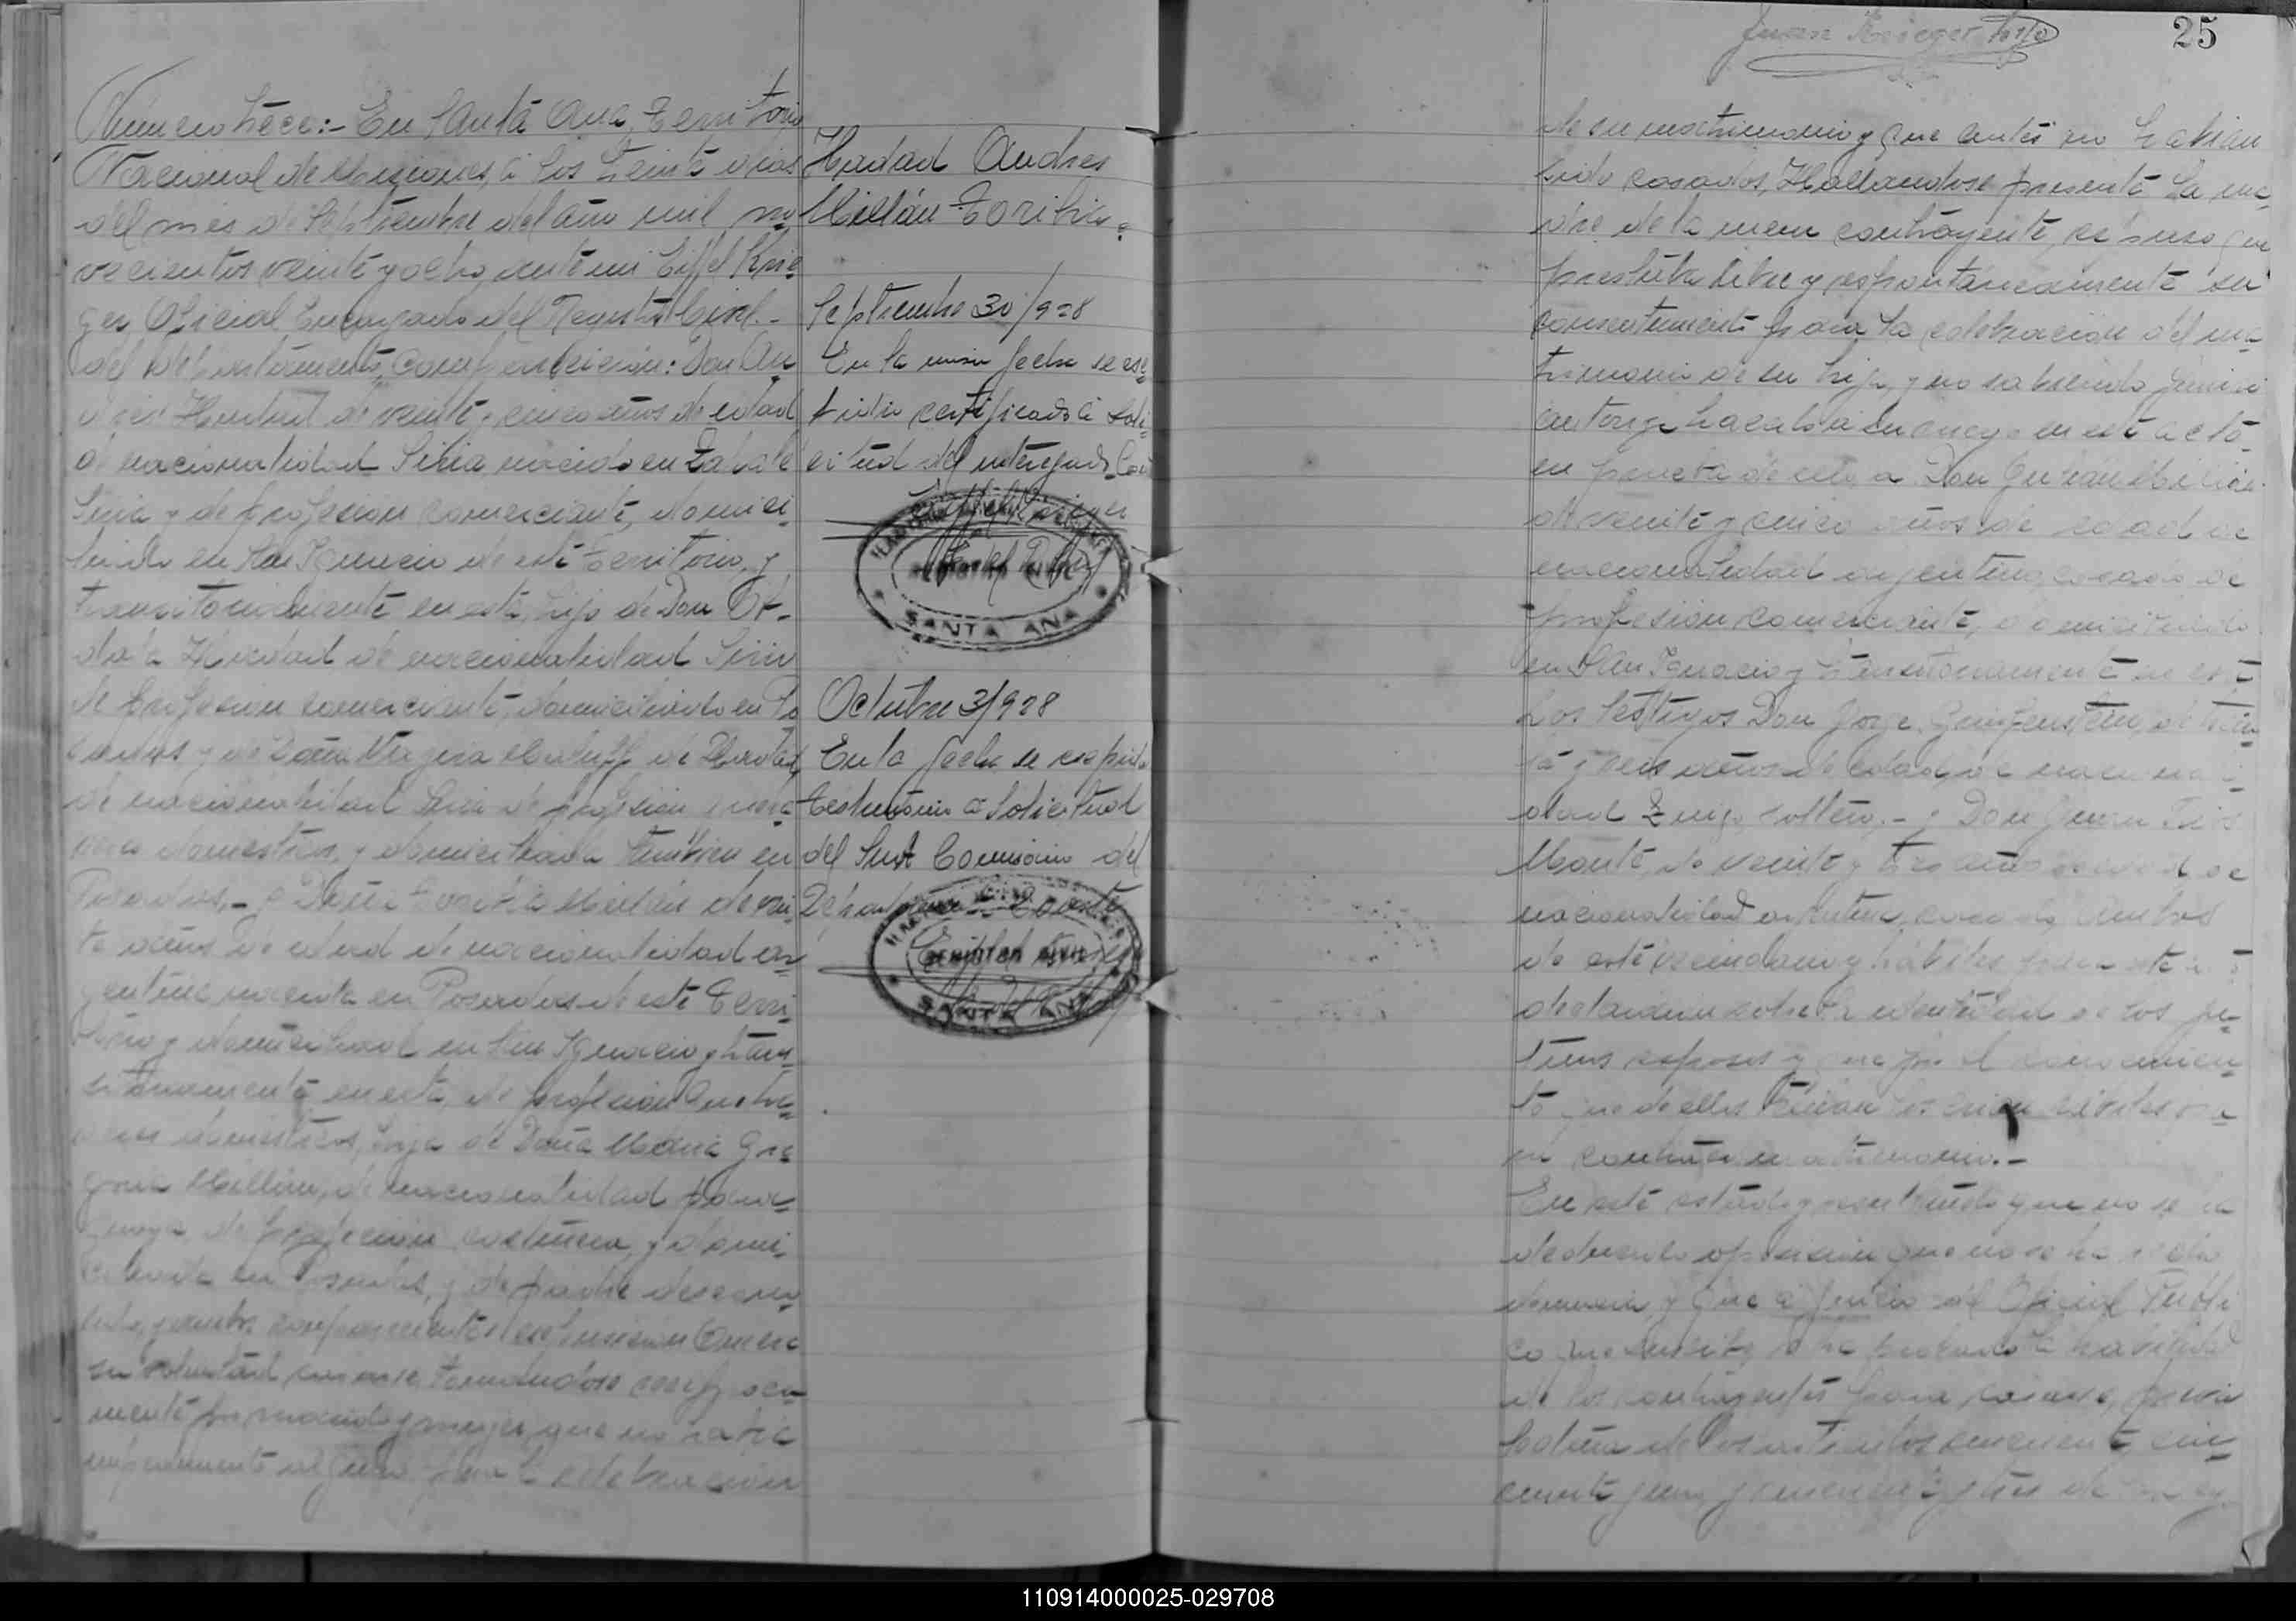 Número trece:- En Santa Ana, Territorio
Nacional de Misiones, á los treinta dias
del mes de Septiembre del año mil no-
vecientos veinte y ocho ante mi Eiffel Krie-
ger Oficial Encargado del Registro Civil.-
del Departamento, Comparecieron: Don An-
drés Hadad de veinte y cinco años de edad
de nacionalidad Siria nacido en
Siria y de profesion comerciante, domici-
liado en San Ignacio de este Territorio, y
transitoriamente en esta, hijo de Don
Hadad de nacionalidad Sirio
de profesion comerciante, domiciliado en Po
sadas y de Doña de Hadad,
de nacionalidad Siria de profesion queha-
ceres domesticos, y domiciliada tambien en
Posadas,- y Doña Toribia Millán de vein-
te años de edad de nacionalidad ar-
gentina nacida en Posadas de este Terri-
torio y domiciliada en San Ignacio y tran-
sitoriamente en esta, de profesion queha-
ceres domesticos, hija de Doña Maria Gre-
goria Millán, de nacionalidad para-
guaya de profesion costurera, y domi-
ciliada en Posadas, y de padre descono-
cido, y ambos comparecientes espusieron que era
su voluntad casarse, tomandose reciproca-
mente por marido y mujer, que no habia
impedimento alguno para la celebracion
Hadad Andres
Millán Toribia.
Septiembre 30/928
En la misma fecha se espe-
didio certificado á soli-
citud del interesado. Con
SANTA ANA
Octubre 3/928
En la fecha se expide
testimonio a Solicitud
del Sub Comisario del
Departamento
REGISTRO CIVIL
SANTA ANA
Juan Krieger
25
de su matrimonio y que antes no habian
sido casados, Hallandose presente la ma-
dre de la menor contrayente, espuso que
prestaba libre y espontaneamente su
consentimiento para la celebracion del ma-
trimonio de su hija, y no sabiendo firmar
autoriza hacerlo a su ruego en esta acta
en presencia de ella a Don
de veinte y cinco años de edad de
nacionalidad argentino, casado de
profesion comerciante, domiciliado
en San Ignacio y transitoriamente en esta
Los testigos Don Jorge de trein-
ta y seis años de edad, de naciona-
lidad soltero,- y Don Juan
de veinte y tres años de edad de
nacionalidad argentino, casado, ambos
de este vecindario y habiles para este acto
declararon sobre la identidad de los fu-
turos esposos y que por el conocimien-
to que de ellos tenian los creian habiles pa-
ra contraer matrimonio.-
En este estado y resultando que no se ha
deducido oposicion que no se ha hecho
denuncia, y que a juicio del Oficial Publi
co que suscribe, se ha probado la habilidad
de los contrayentes para casarse, previa
lectura de los articulos cincuenta cin-
cuenta y uno y cincuenta y tres de la ley
110914000025-029708